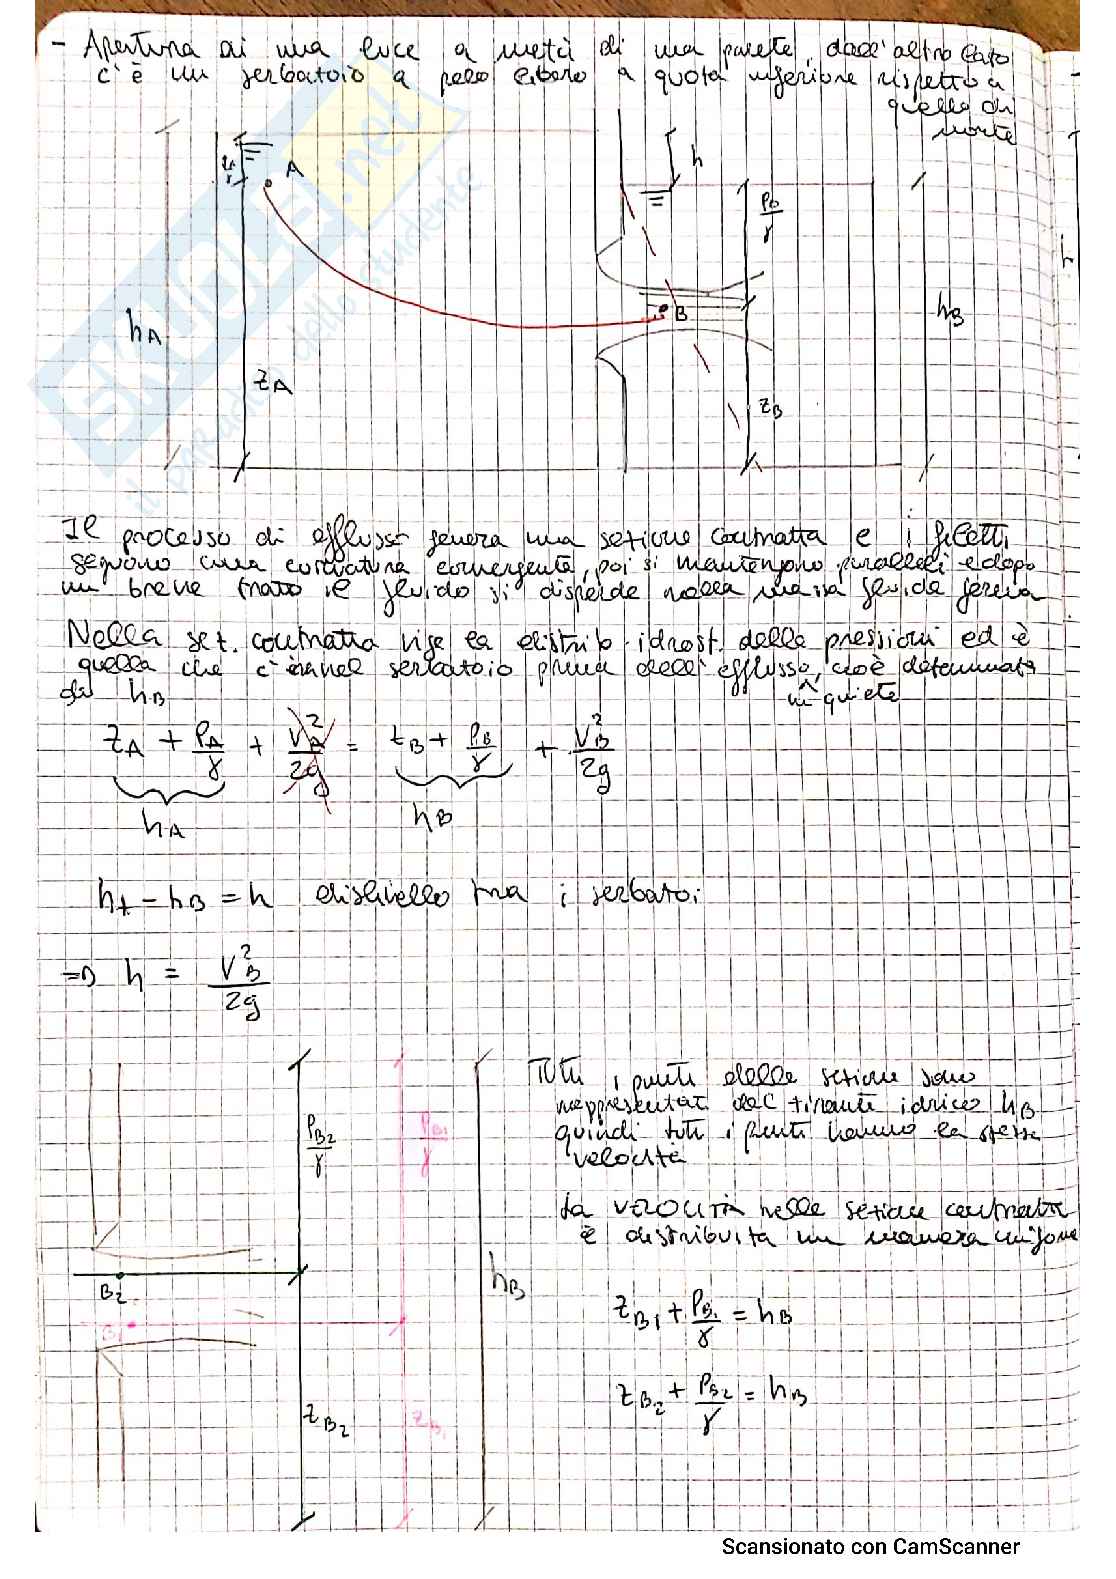 - Apertura di una luce a metà di una parete, dall'altro lato
c'è un serbatoio a pelo libero a quota inferiore rispetto a
quella di
monte
A
h
PB/γ
hA
zA
B
hB
zB
SKUOLA.net
il paradiso dello studente
Il processo di efflusso genera una sezione contratta e i filetti
seguono una curvatura convergente, poi si mantengono paralleli e dopo
un breve tratto il fluido si disperde nella massa fluida ferma
Nella sez. contratta vige la distrib. idrost. delle pressioni ed è
quella che c'era nel serbatoio prima dell'efflusso, cioè determinata
da hB in quiete
zA + PA/γ + VA²/2g = zB + PB/γ + VB²/2g
hA hB
hA - hB = h dislivello tra i serbatoi
=> h = VB²/2g
Tutti i punti della sezione sono
rappresentati dal tirante idrico hB
quindi tutti i punti hanno la stessa
velocità
La VELOCITÀ nella sezione contratta
è distribuita in maniera uniforme
PB2/γ
PB1/γ
hB
B2
B1
zB2
zB1
zB1 + PB1/γ = hB
zB2 + PB2/γ = hB
Scansionato con CamScanner